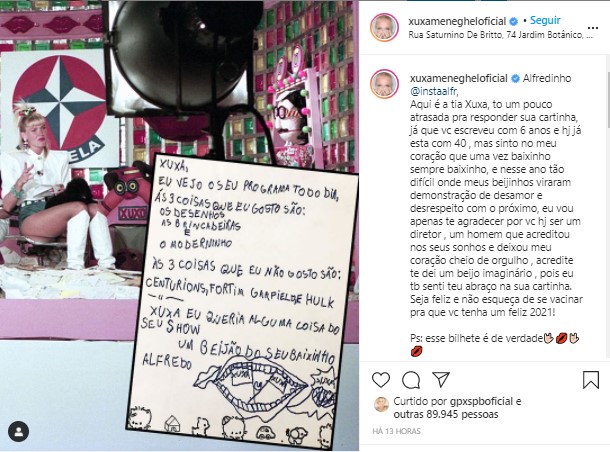 ELA
XUXO
XUXA,
EU VEJO O SEU PROGRAMA TODO DIA,
ÁS 3 COISAS QUE EU GOSTO SÃO:
OS DESENHOS
AS BRINCADEIRAS
E
O MODERNINHO
ÀS 3 COISAS QUE EU NÃO GOSTO SÃO:
CENTURIONS, FORTIM GARPIELDE HULK
XUXA EU QUERIA ALGUMA COISA DO
SEU SHOW
UM BEIJÃO DO SEU BAIXINHO
ALFREDO
xuxamenegheloficial • Seguir
Rua Saturnino De Britto, 74 Jardim Botânico, ...
xuxamenegheloficial Alfredinho
@instaalfr,
Aqui é a tia Xuxa, to um pouco
atrasada pra responder sua cartinha,
já que vc escreveu com 6 anos e hj já
esta com 40 , mas sinto no meu
coração que uma vez baixinho
sempre baixinho, e nesse ano tão
difícil onde meus beijinhos viraram
demonstração de desamor e
desrespeito com o próximo, eu vou
apenas te agradecer por vc hj ser um
diretor , um homem que acreditou
nos seus sonhos e deixou meu
coração cheio de orgulho , acredite
te dei um beijo imaginário , pois eu
tb senti teu abraço na sua cartinha.
Seja feliz e não esqueça de se vacinar
pra que vc tenha um feliz 2021!
Ps: esse bilhete é de verdade👌🏻💋👌🏻
💋
Curtido por gpxspboficial e
outras 89.945 pessoas
HÁ 13 HORAS